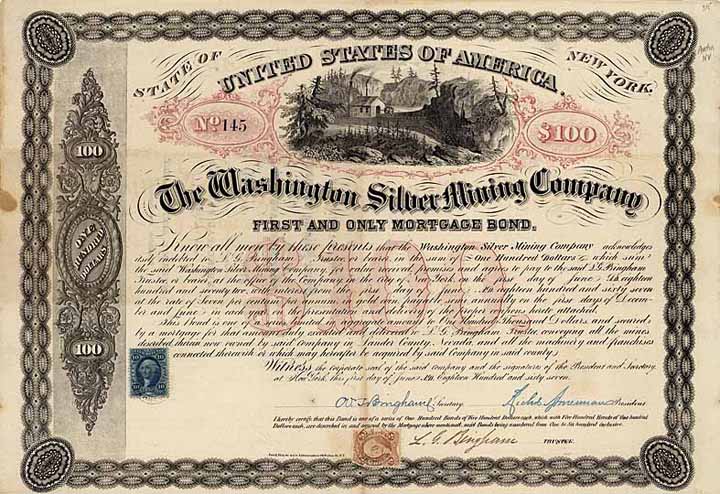 STATE OF NEW YORK.
UNITED STATES OF AMERICA.
No. 145
$100
The Washington Silver Mining Company
FIRST AND ONLY MORTGAGE BOND.
100
ONE HUNDRED DOLLARS
100
$100
Know all men by these presents that the Washington Silver Mining Company acknowledges
itself indebted to L. G. Bingham Trustee, or bearer, in the sum of One Hundred Dollars which sum
the said Washington Silver Mining Company, for value received, promises and agrees to pay to the said L. G. Bingham
Trustee, or bearer, at the office of the Company in the City of New York on the first day of June Eighteen
hundred and seventy with interest from the first day of June Eighteen hundred and sixty seven
at the rate of Seven per centum per annum in gold coin payable semi annually on the first days of Decem-
ber and June in each year on the presentation and delivery of the proper coupons hereto attached.
This Bond is one of a series limited in aggregate amount to One Hundred Thousand Dollars, and secured
by a mortgage for that amount duly executed and delivered to L. G. Bingham Trustee, conveying all the mines
described therein now owned by said company in Lander County, Nevada, and all the machinery and franchises
connected therewith or which may hereafter be acquired by said Company in said county.
Witness the corporate seal of the said company and the signature of the President and Secretary
at New York, this first day of June, AD. Eighteen Hundred and sixty seven.
Bingham Secretary President
I hereby certify that this Bond is one of a series of One Hundred Bonds of Five Hundred Dollars each, which with Five Hundred Bonds of One hundred
Dollars each, are described in and secured by the Mortgage above mentioned, said Bonds being numbered from One to Six hundred inclusive.
L. G. Bingham TRUSTEE.